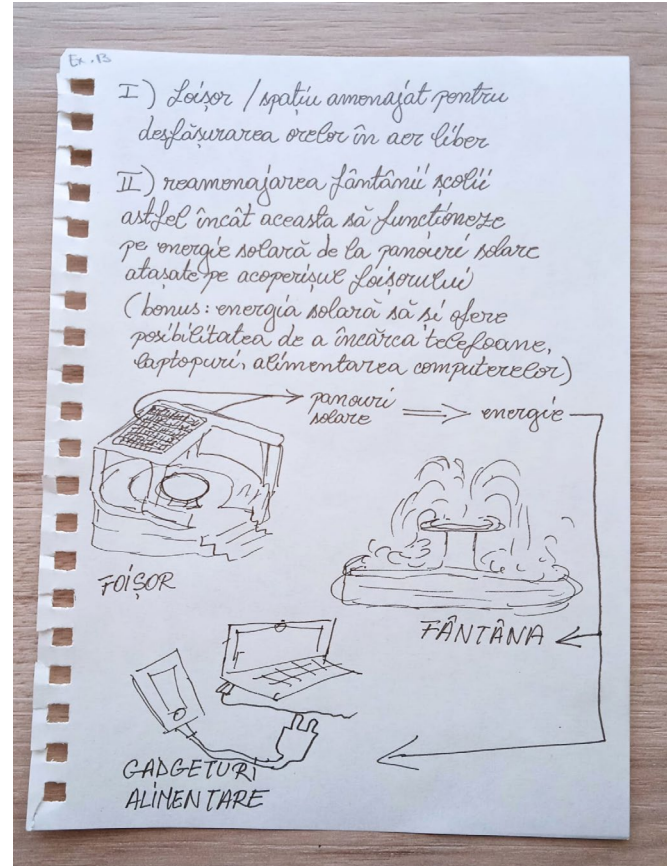 Ex. B
I) Foișor / spațiu amenajat pentru
desfășurarea orelor în aer liber
II) reamenajarea fântânii școlii
astfel încât aceasta să functioneze
pe energie solară de la panouri solare
atașate pe acoperișul foișorului
(bonus: energia solară să și ofere
posibilitatea de a încărca telefoane,
laptopuri, alimentarea computerelor)
panouri
solare
energie
FOIȘOR
FÂNTÂNA
GADGETURI
ALIMENTARE